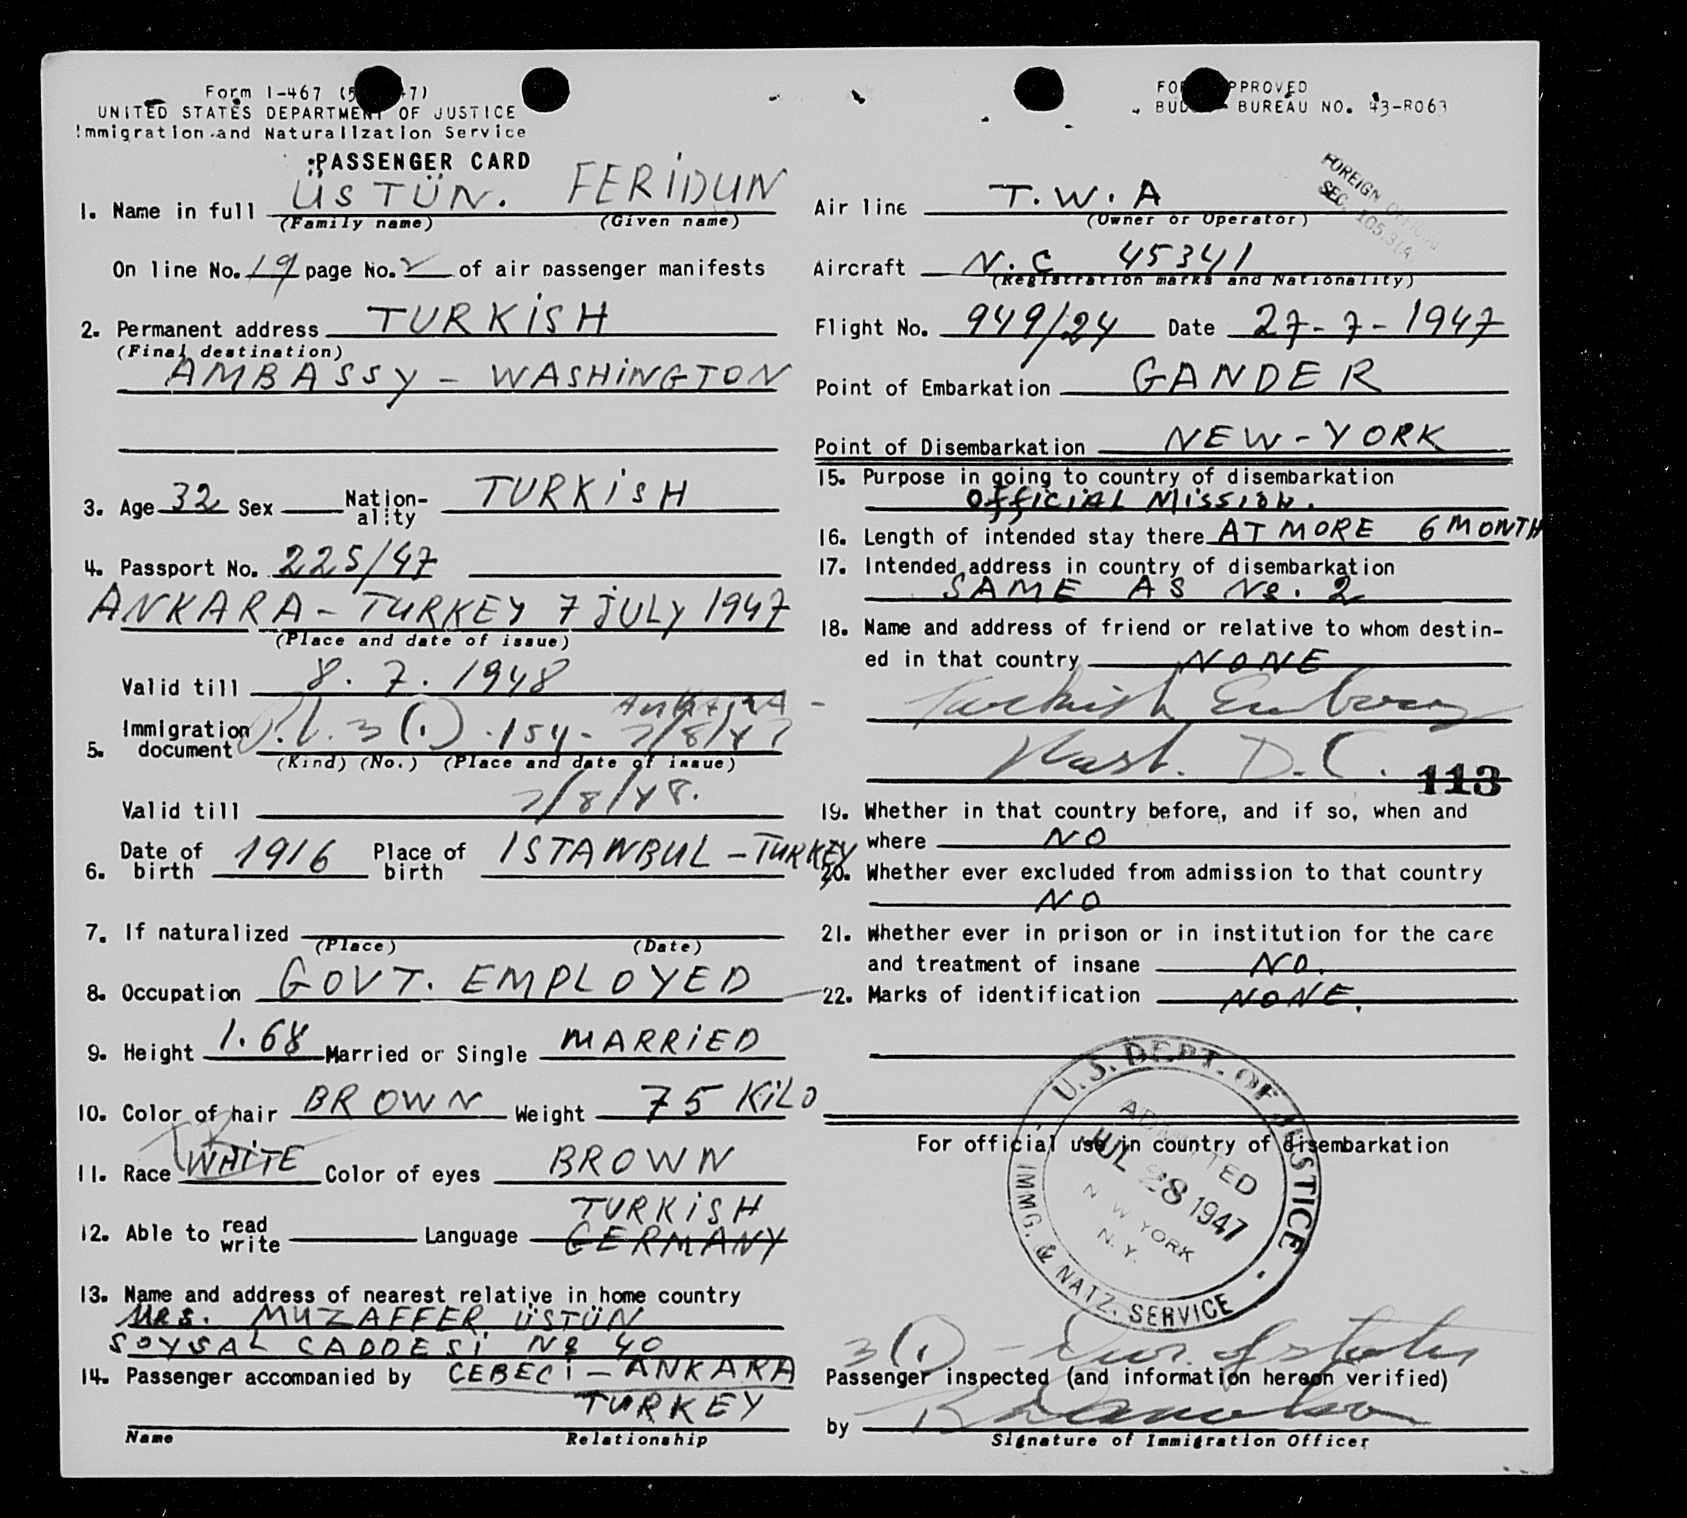 Form I-467 (5 47)
UNITED STATES DEPARTMENT OF JUSTICE
Immigration and Naturalization Service
PASSENGER CARD
1. Name in full ÜSTÜN. FERIDUN
(Family name) (Given name)
On line No. 19 page No. 2 of air passenger manifests
2. Permanent address TURKISH
(Final destination)
AMBASSY - WASHINGTON
3. Age 32 Sex Nation-ality TURKISH
4. Passport No. 225/47
ANKARA - TURKEY 7 JULY 1947
(Place and date of issue)
Valid till 8. 7. 1948
5. Immigration document 3 (1) 154 - ANKARA - 7/8/47
(Kind) (No.) (Place and date of issue)
Valid till 7/8/48.
6. Date of birth 1916 Place of birth ISTANBUL - TURKEY
7. If naturalized
(Place) (Date)
8. Occupation GOVT. EMPLOYED
9. Height 1.68 Married or Single MARRIED
10. Color of hair BROWN Weight 75 KILO
11. Race WHITE Color of eyes BROWN
TURKISH
12. Able to read write Language GERMANY
13. Name and address of nearest relative in home country
MRS. MUZAFFER ÜSTÜN
SOYSAL CADDESI No 40
14. Passenger accompanied by CEBECI - ANKARA
TURKEY
Name Relationship
FORM APPROVED
BUDGET BUREAU NO. 43-R063
FOREIGN OFFICIAL
SEC.
Air line T.W.A
(Owner or Operator)
Aircraft N.C 45341
(Registration marks and Nationality)
Flight No. 949/24 Date 27-7-1947
Point of Embarkation GANDER
Point of Disembarkation NEW-YORK
15. Purpose in going to country of disembarkation
OFFICIAL MISSION.
16. Length of intended stay there AT MORE 6 MONTH
17. Intended address in country of disembarkation
SAME AS No. 2
18. Name and address of friend or relative to whom destin-
ed in that country NONE
Turkish Embassy
Wash. D.C. 113
19. Whether in that country before, and if so, when and
where NO
20. Whether ever excluded from admission to that country
NO
21. Whether ever in prison or in institution for the care
and treatment of insane NO.
22. Marks of identification NONE.
For official use in country of disembarkation
U.S. DEPT. OF JUSTICE
ADMITTED
JUL 28 1947
NEW YORK
N.Y.
IMMG. & NATZ. SERVICE
3(1) - Dur. of status
Passenger inspected (and information hereon verified)
by
Signature of Immigration Officer